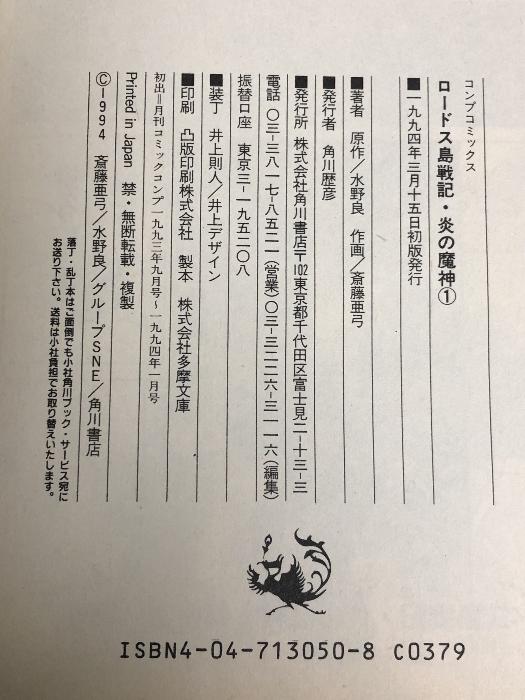 コンプコミックス
ロードス島戦記・炎の魔神①
■一九九四年三月十五日初版発行
■著者　原作/水野良　作画/斎藤亜弓
■発行者　角川歴彦
■発行所　株式会社角川書店〒102東京都千代田区富士見二-十三-三
電話　〇三-三八一七-八五二一(営業)〇三-三二二六-三一一六(編集)
振替口座　東京三-一九五二〇八
■装丁　井上則人/井上デザイン
■印刷　凸版印刷株式会社　製本　株式会社多摩文庫
初出＝月刊コミックコンプ一九九三年九月号〜一九九四年一月号
Printed in Japan　禁・無断転載・複製
©1994　斎藤亜弓/水野良/グループSNE/角川書店
落丁・乱丁本はご面倒でも小社角川ブック・サービス宛に
お送り下さい。送料は小社負担でお取り替えいたします。
ISBN4-04-713050-8 C0379